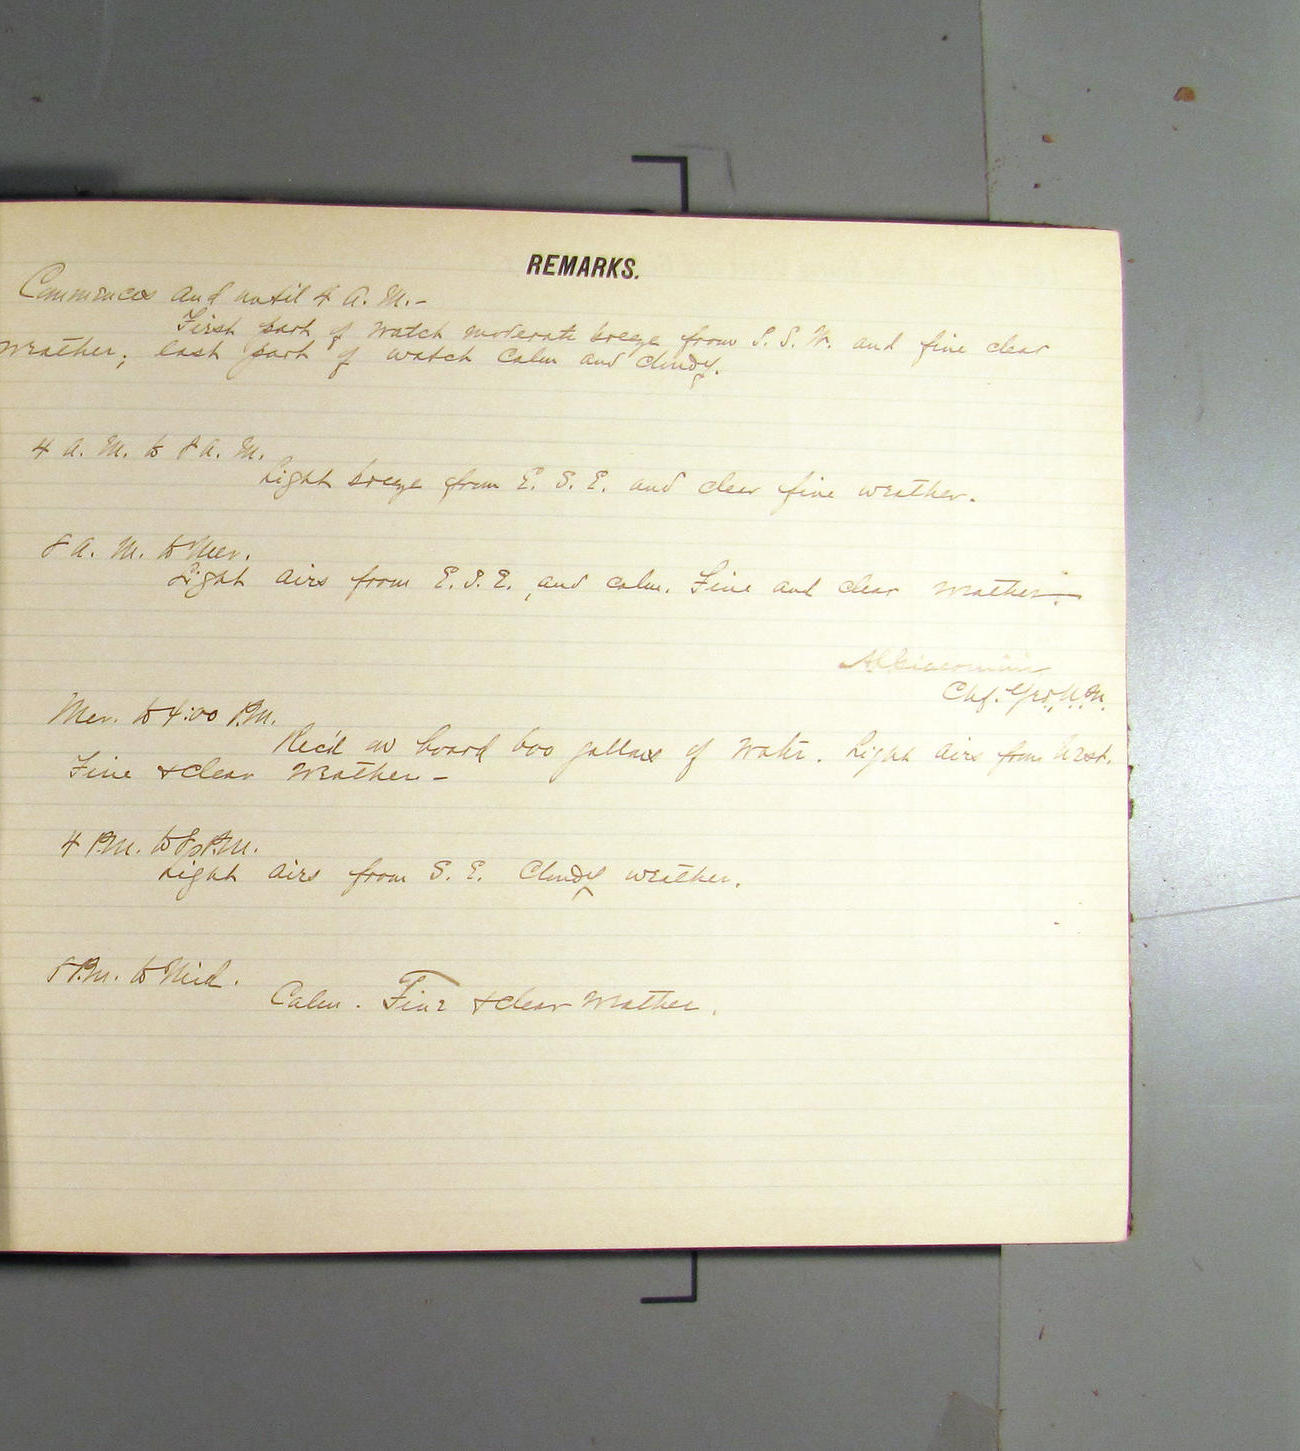 REMARKS.
Commences and until 4 A. M.-
First part of watch moderate breeze from S. S. W. and fine clear
weather; last part of watch calm and cloudy.
4 A. M. to 8 A. M.
Light breeze from E. S. E. and clear fine weather.
8 A. M. to Mer.
Light airs from E. S. E., and calm. Fine and clear weather.
Mer. to 4:00 P.M.
Rec'd on board 600 gallons of water. Light airs from West.
Fine & clear weather-
4 P.M. to 8 P.M.
Light airs from S. E. Cloudy weather.
8 P.M. to Mid.
Calm. Fine & clear weather.